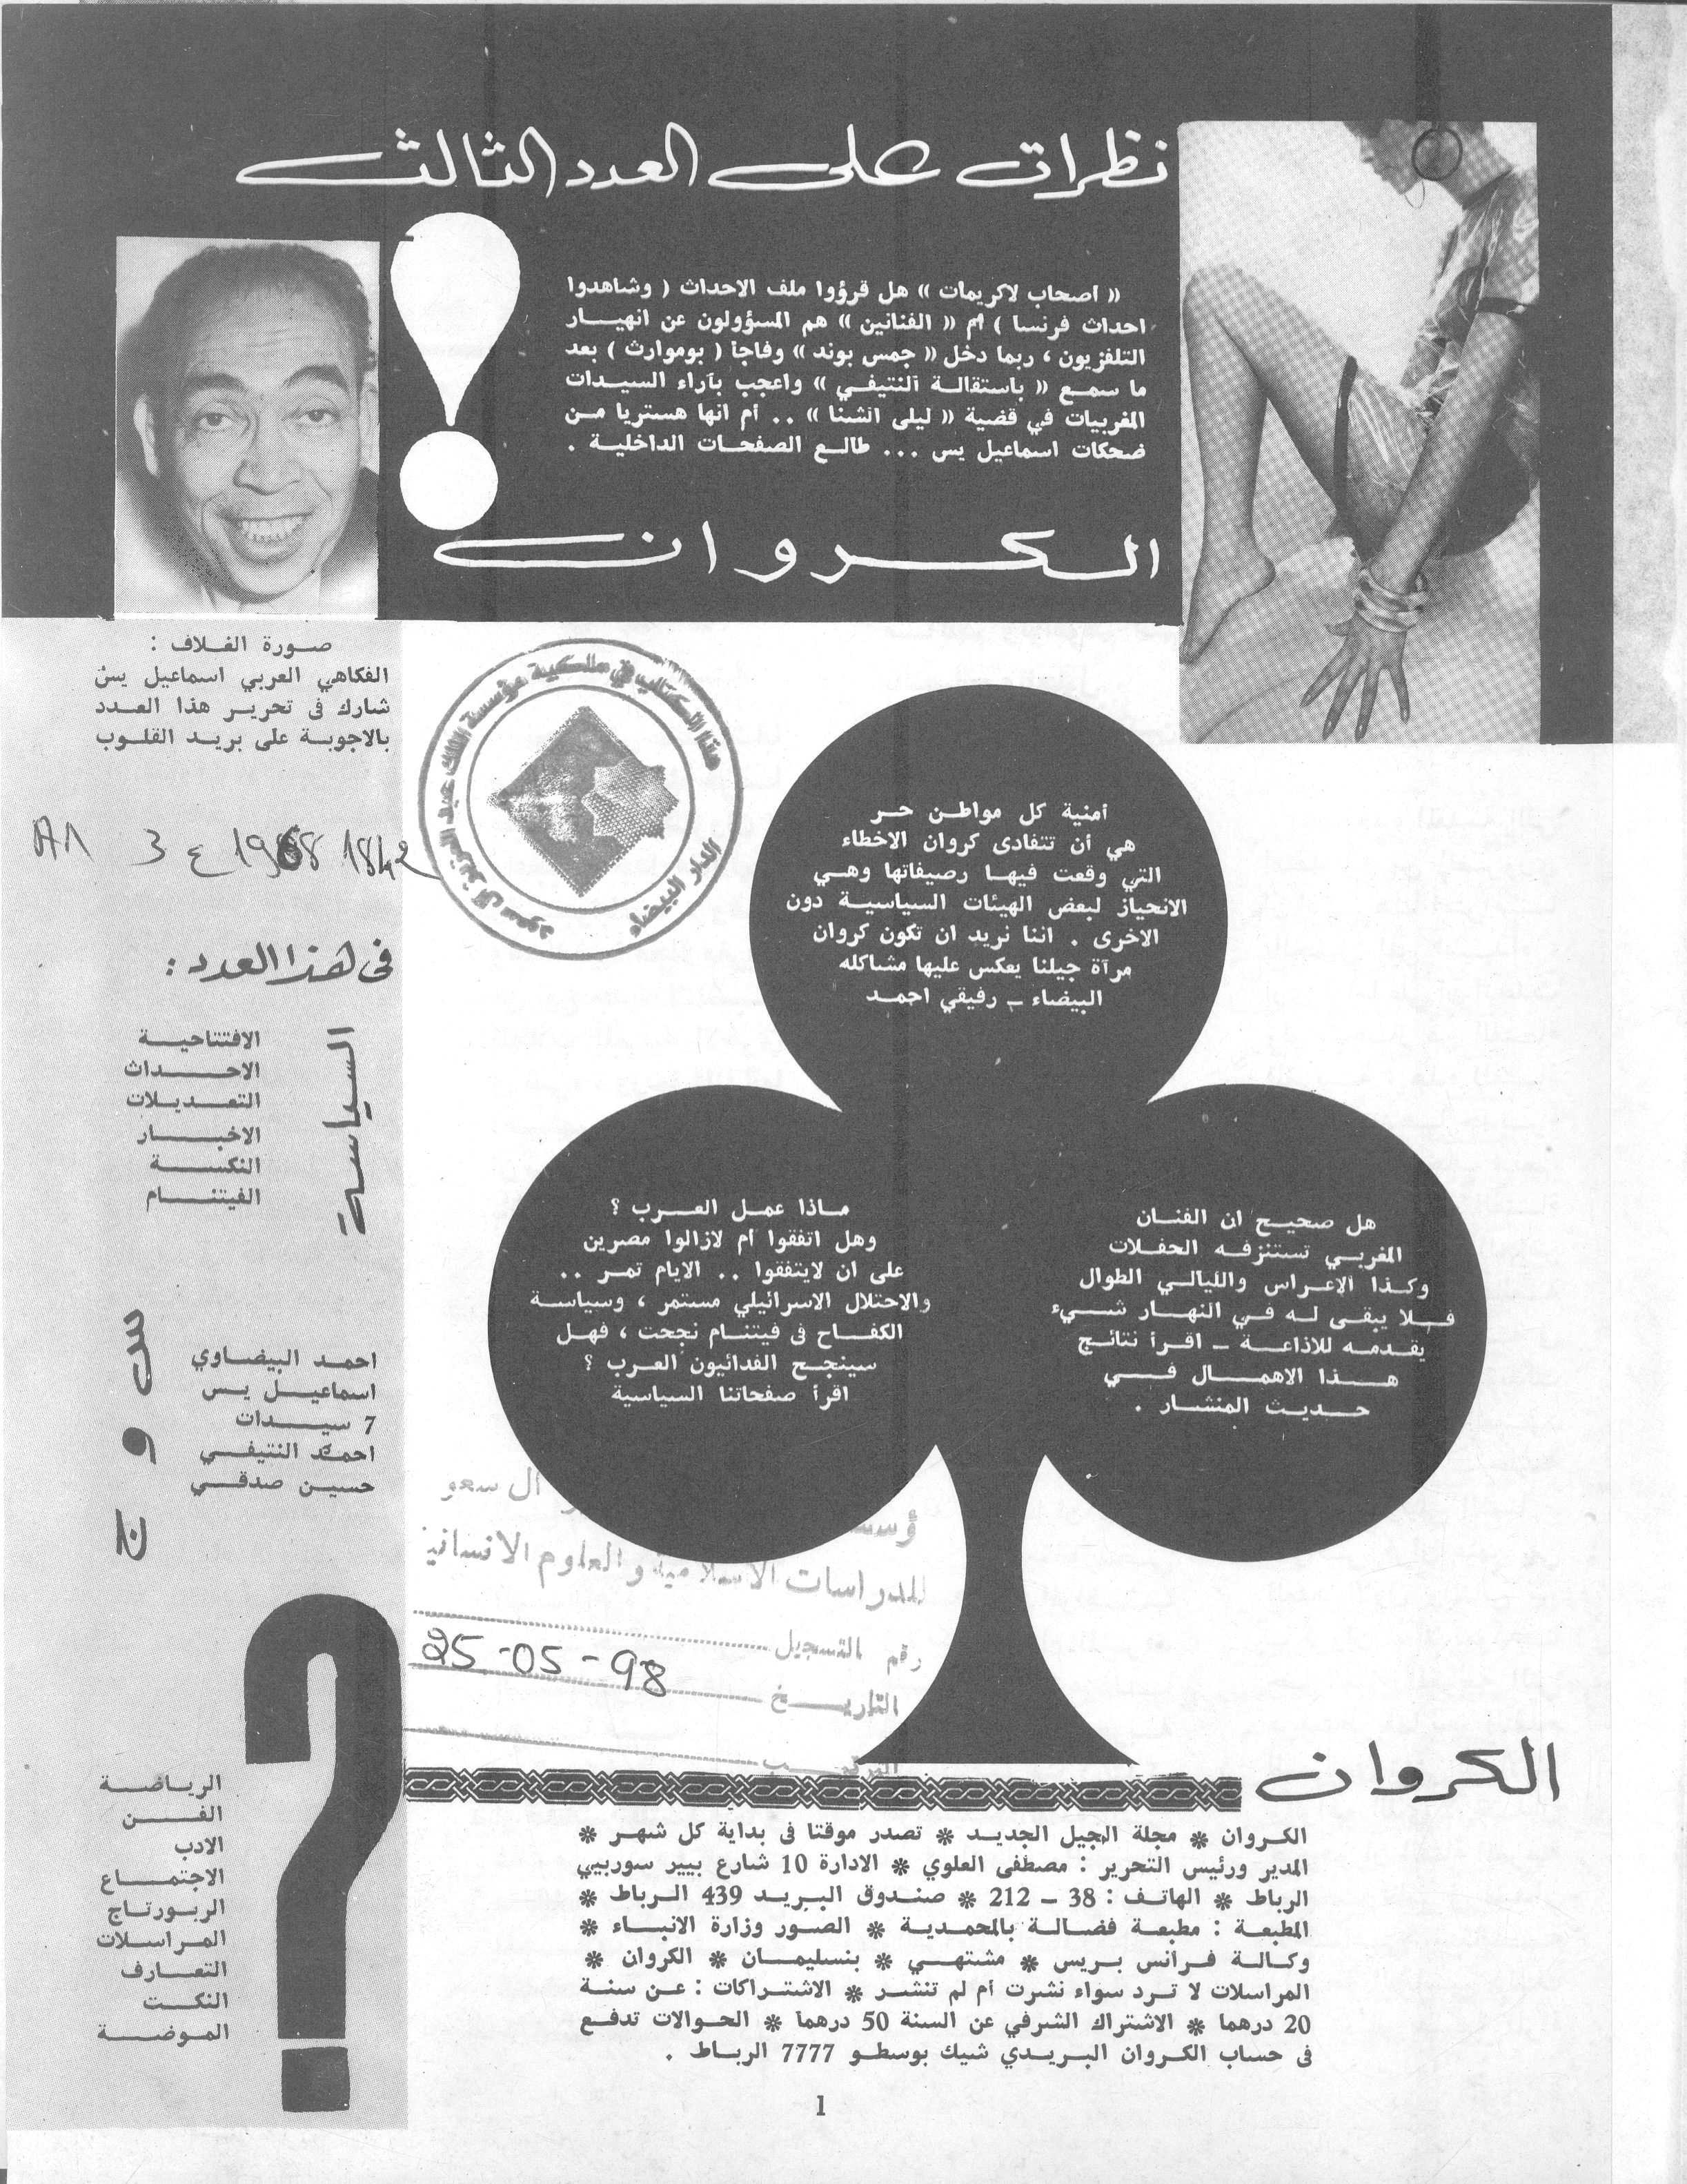 نظرات على العدد الثالث
« أصحاب لاكريمات » هل قرؤوا ملف الاحداث ( وشاهدوا
احداث فرنسا ) أم « الفنانين » هم المسؤولون عن انهيار
التلفزيون ، ربما دخل « جمس بوند » وفاجأ ( بوموارث ) بعد
ما سمع « باستقالة النتيفي » واعجب بآراء السيدات
المغربيات في قضية « ليلى الشنا » .. أم انها هستريا من
ضحكات اسماعيل يس ... طالع الصفحات الداخلية .
الكروان
صورة الغلاف :
الفكاهي العربي اسماعيل يسن
شارك فى تحرير هذا العدد
بالاجوبة على بريد القلوب
هذا الكتاب في ملكية مؤسسة الملك عبد العزيز آل سعود
الدار البيضاء
3 ع 1968 1842
أمنية كل مواطن حر
هي أن تتفادى كروان الاخطاء
التي وقعت فيها رصيفاتها وهي
الانحياز لبعض الهيئات السياسية دون
الاخرى . اننا نريد ان تكون كروان
مرآة جيلنا يعكس عليها مشاكله
البيضاء – رفيقي احمد
هل صحيح ان الفنان
المغربي تستنزفه الحفلات
وكذا الاعراس والليالي الطوال
فلا يبقى له في النهار شيء
يقدمه للاذاعة – اقرأ نتائج
هذا الاهمال في
حديث المنشار .
ماذا عمل العرب ؟
وهل اتفقوا أم لازالوا مصرين
على ان لايتفقوا .. الايام تمر ..
والاحتلال الاسرائيلي مستمر ، وسياسة
الكفاح فى فيتنام نجحت ، فهل
سينجح الفدائيون العرب ؟
اقرأ صفحاتنا السياسية
فى هذا العدد :
السياسة
الافتتاحية
الاحداث
التعديلات
الاخبار
النكسة
الفيتنام
س و ج
احمد البيضاوي
اسماعيل يس
7 سيدات
احمد النتيفي
حسين صدقي
؟
الرياضة
الفن
الادب
الاجتماع
الربورتاج
المراسلات
التعارف
النكت
الموضة
آل سعو
للدراسات الاسلامية والعلوم الانسانية
رقم التسجيل
25-05-98
التاريخ
الكروان
الكروان * مجلة الجيل الجديد * تصدر موقتا فى بداية كل شهر *
المدير ورئيس التحرير : مصطفى العلوي * الادارة 10 شارع بيير سوربيي
الرباط * الهاتف : 38 – 212 * صندوق البريد 439 الرباط *
المطبعة : مطبعة فضالة بالمحمدية * الصور وزارة الانباء *
وكالة فرانس بريس * مشتهي * بنسليمان * الكروان *
المراسلات لا ترد سواء نشرت أم لم تنشر * الاشتراكات : عن سنة
20 درهما * الاشتراك الشرفي عن السنة 50 درهما * الحوالات تدفع
فى حساب الكروان البريدي شيك بوسطو 7777 الرباط .
1